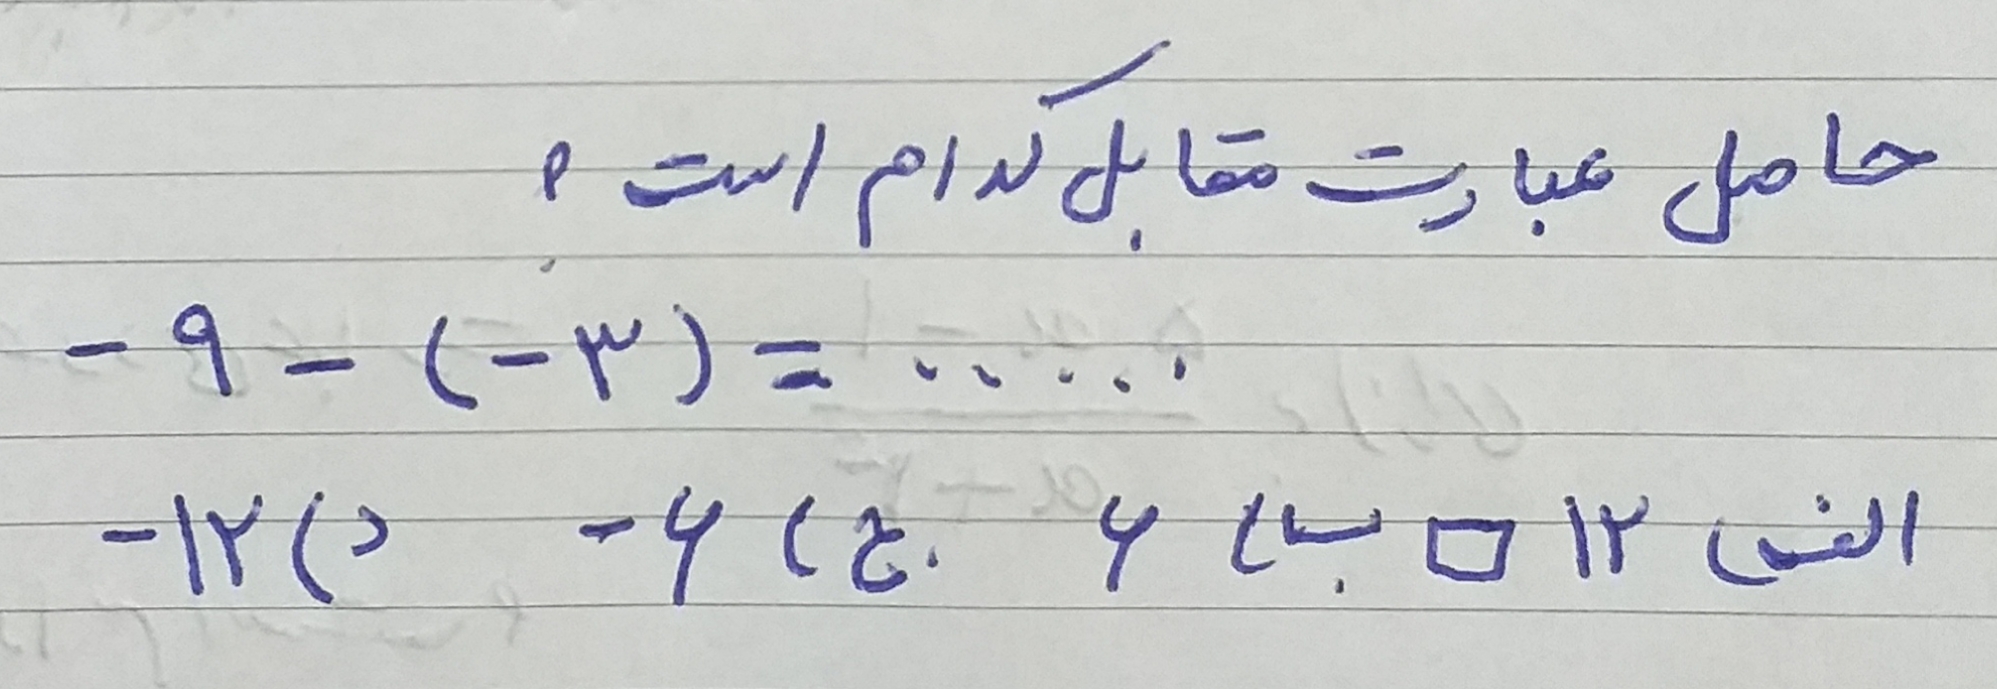 حاصل عبارت مقابل کدام است ؟
-۹ - (-۳) = ......
الف) ۱۲ □ ب) ۶ ج) -۶ د) -۱۲